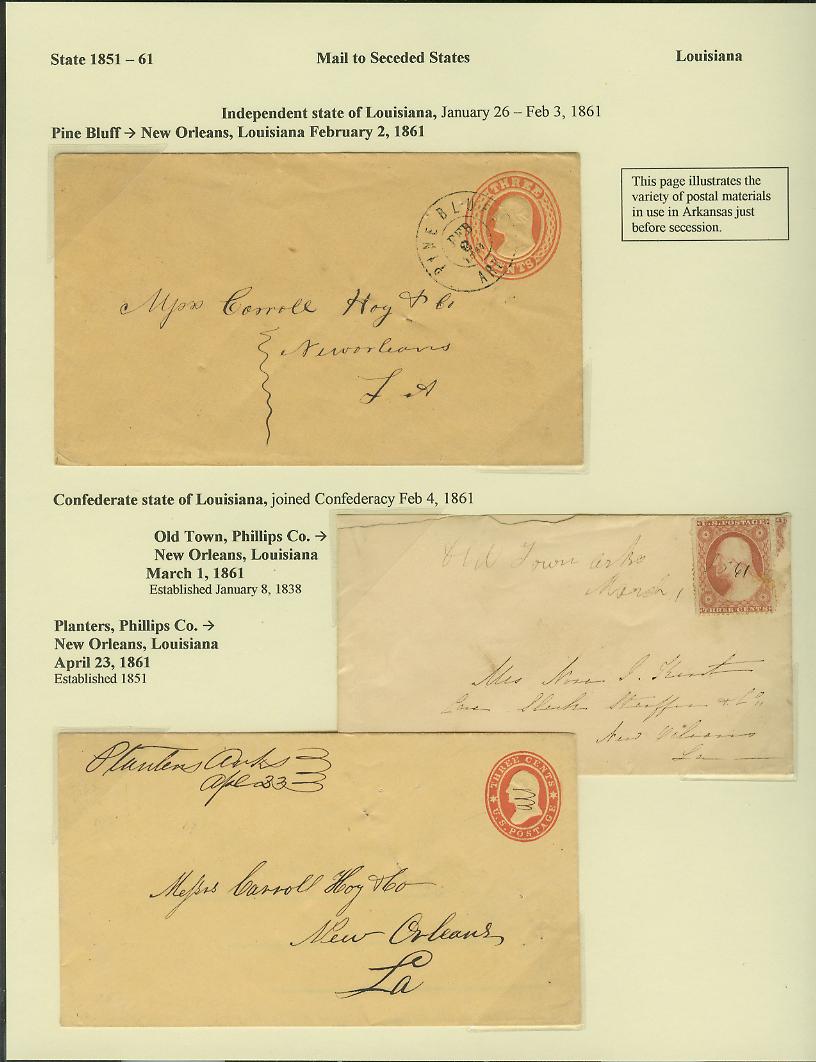 State 1851 – 61 Mail to Seceded States Louisiana
Independent state of Louisiana, January 26 – Feb 3, 1861
Pine Bluff → New Orleans, Louisiana February 2, 1861
This page illustrates the
variety of postal materials
in use in Arkansas just
before secession.
THREE
CENTS
PINE BLUFF
FEB
2
ARK
Messrs Carroll Hoy & Co
Neworleans
L A
Confederate state of Louisiana, joined Confederacy Feb 4, 1861
Old Town, Phillips Co. →
New Orleans, Louisiana
March 1, 1861
Established January 8, 1838
Planters, Phillips Co. →
New Orleans, Louisiana
April 23, 1861
Established 1851
Old Town Arks
March 1
U.S. POSTAGE
1861
THREE CENTS
Mrs Nora J. Kent
Care &Co.
New Orleans
La
Planters Arks
Apl 23
THREE CENTS
U.S. POSTAGE
Messrs Carroll Hoy & Co
New Orleans
La